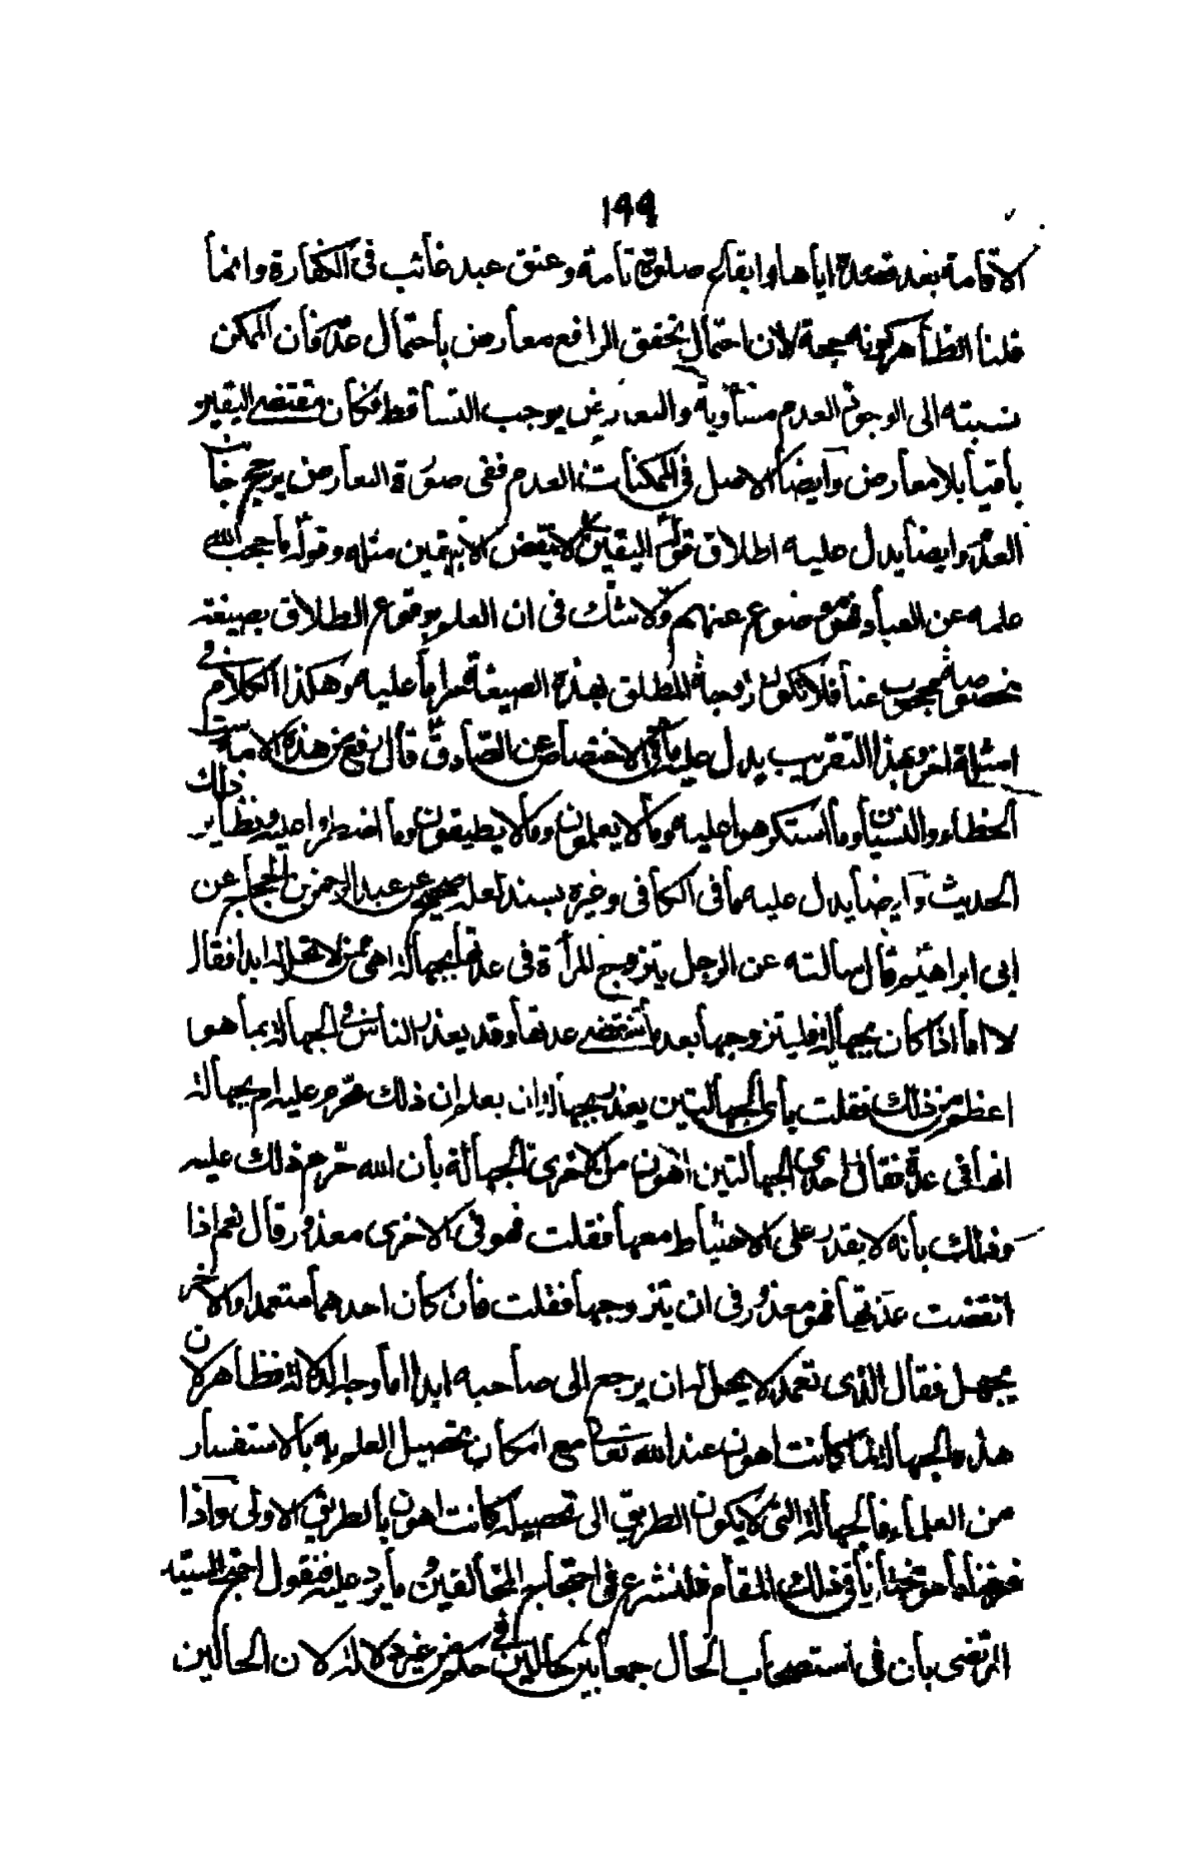 ١٩٩
الاقامة بعد قصده اياها وايقاع صلوة تامة وعتق عبد غائب فى الكفارة وانما
قلنا الظاهر كونه حجة لان احتمال تحقق الرافع معارض باحتمال عدمه فان الممكن
نسبته الى الوجود والعدم متساوية والتعارض يوجب التساقط فكان مقتضى اليقين
باقيا بلا معارض وايضا الاصل فى الممكنات العدم ففى صورة التعارض يرجح جانب
العدم وايضا يدل عليه اطلاق قولهم اليقين لا ينقض الا بيقين مثله وقوله ما حجب الله
علمه عن العباد فهو موضوع عنهم ولا شك فى ان العلم بوقوع الطلاق بصيغة
مخصوصة محجوب عنا فلا تكون زوجة المطلق بهذه الصيغة حراما عليه وهكذا الكلام فى
امثلة اخر وبهذا التقريب يدل عليه ما فى الاختصاص عن الصادق قال رفع عن هذه الامة ست
الخطاء والنسيان وما استكرهوا عليه وما لا يعلمون وما لا يطيقون وما اضطروا عليه ونظاير ذلك
الحديث وايضا يدل عليه ما فى الكافى وغيره بسند لعله صحيح عن عبد الرحمن بن الحجاج عن
ابى ابراهيم قال سالته عن الرجل يتزوج المرأة فى عدتها بجهالة اهى ممن لا تحل له ابدا فقال
لا اما اذا كان بجهالة فليتزوجها بعد ما تنقضى عدتها وقد يعذر الناس فى الجهالة بما هو
اعظم من ذلك فقلت باى الجهالتين يعذر بجهالة ان يعلم ان ذلك محرم عليه ام بجهالة
انها فى عدة فقال احدى الجهالتين اهون من الاخرى الجهالة بان الله حرم ذلك عليه
وذلك بانه لا يقدر على الاحتياط معها فقلت فهو فى الاخرى معذور قال نعم اذا
انقضت عدتها فهو معذور فى ان يتزوجها فقلت فان كان احدهما متعمدا والاخر
يجهل فقال الذى تعمد لا يحل له ان يرجع الى صاحبه ابدا اما وجه الدلالة فظاهر لان
هذه الجهالة لما كانت اهون عند الله تعالى مع امكان تحصيل العلم به بالاستفسار
من العلماء فالجهالة التى لا يكون الطريق الى تحصيله كانت اهون بالطريق الاولى واذا
عرفت ما هو مختارنا فى ذلك المقام فلنشرع فى احتجاج المخالفين وما يرد عليه فنقول احتج السيد
المرتضى بان فى استصحاب الحال جمعا بين حالين فى حكم من غير دلالة لان الحالين